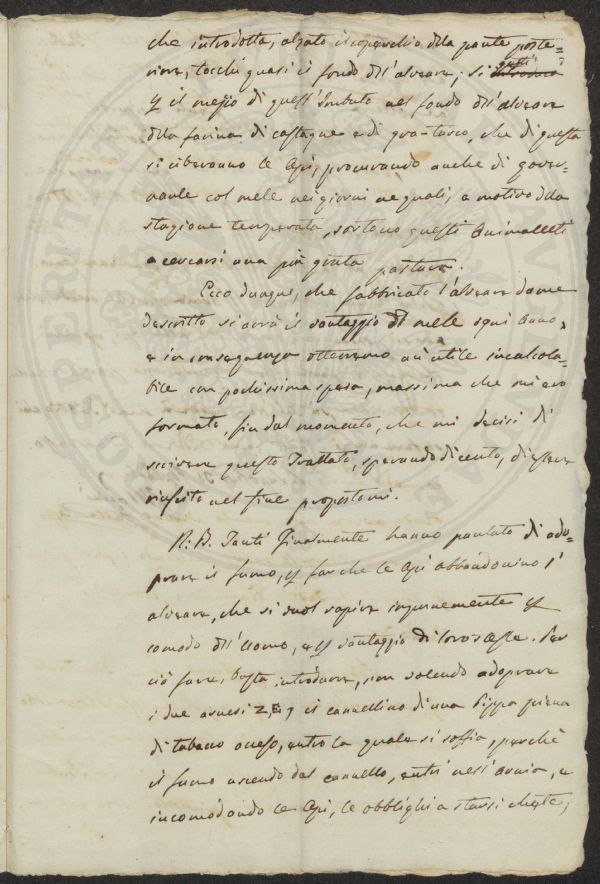 che introdotta, alzato il coperchio della parte poste=
riore, tocchi quasi il fondo dell'alveare; si getti
p il mezzo di quest'Imbuto nel fondo dell'alveare
della farina di castagne e di gran-turco, che di questa
si ciberanno le Api, procurando anche di gover=
narle col mele nei giorni ne quali, a motivo della
stagione temperata, sortono questi Animaletti
a cercarsi una più grata pastura.
Ecco dunque, che fabbricato l'alveare come
descritto si avrà il vantaggio del mele ogni Anno,
e in conseguenza otterremo un utile incalcola=
bile con pochissima spesa, massima che mi ero
formato, fin dal momento, che mi decisi di
scrivere questo Trattato, sperando di certo, di essere
riuscito nel fine propostomi.
N: B. Tanti finalmente hanno parlato di ado=
prare il fumo, p far che le Api abbandonino l'
alveare, che si vuol rapire impunemente p
comodo dell'Uomo, e p vantaggio di loro stesse. Per
ciò fare, basta introdurre, non volendo adoprare
i due arnesi Z, E, il cannellino d'una Pippa piena
di tabacco acceso, entro la quale si soffia, perchè
il fumo uscendo dal cannello, entri nell'arnia, e
incomodando le Api, le obblighi a starsi chete;